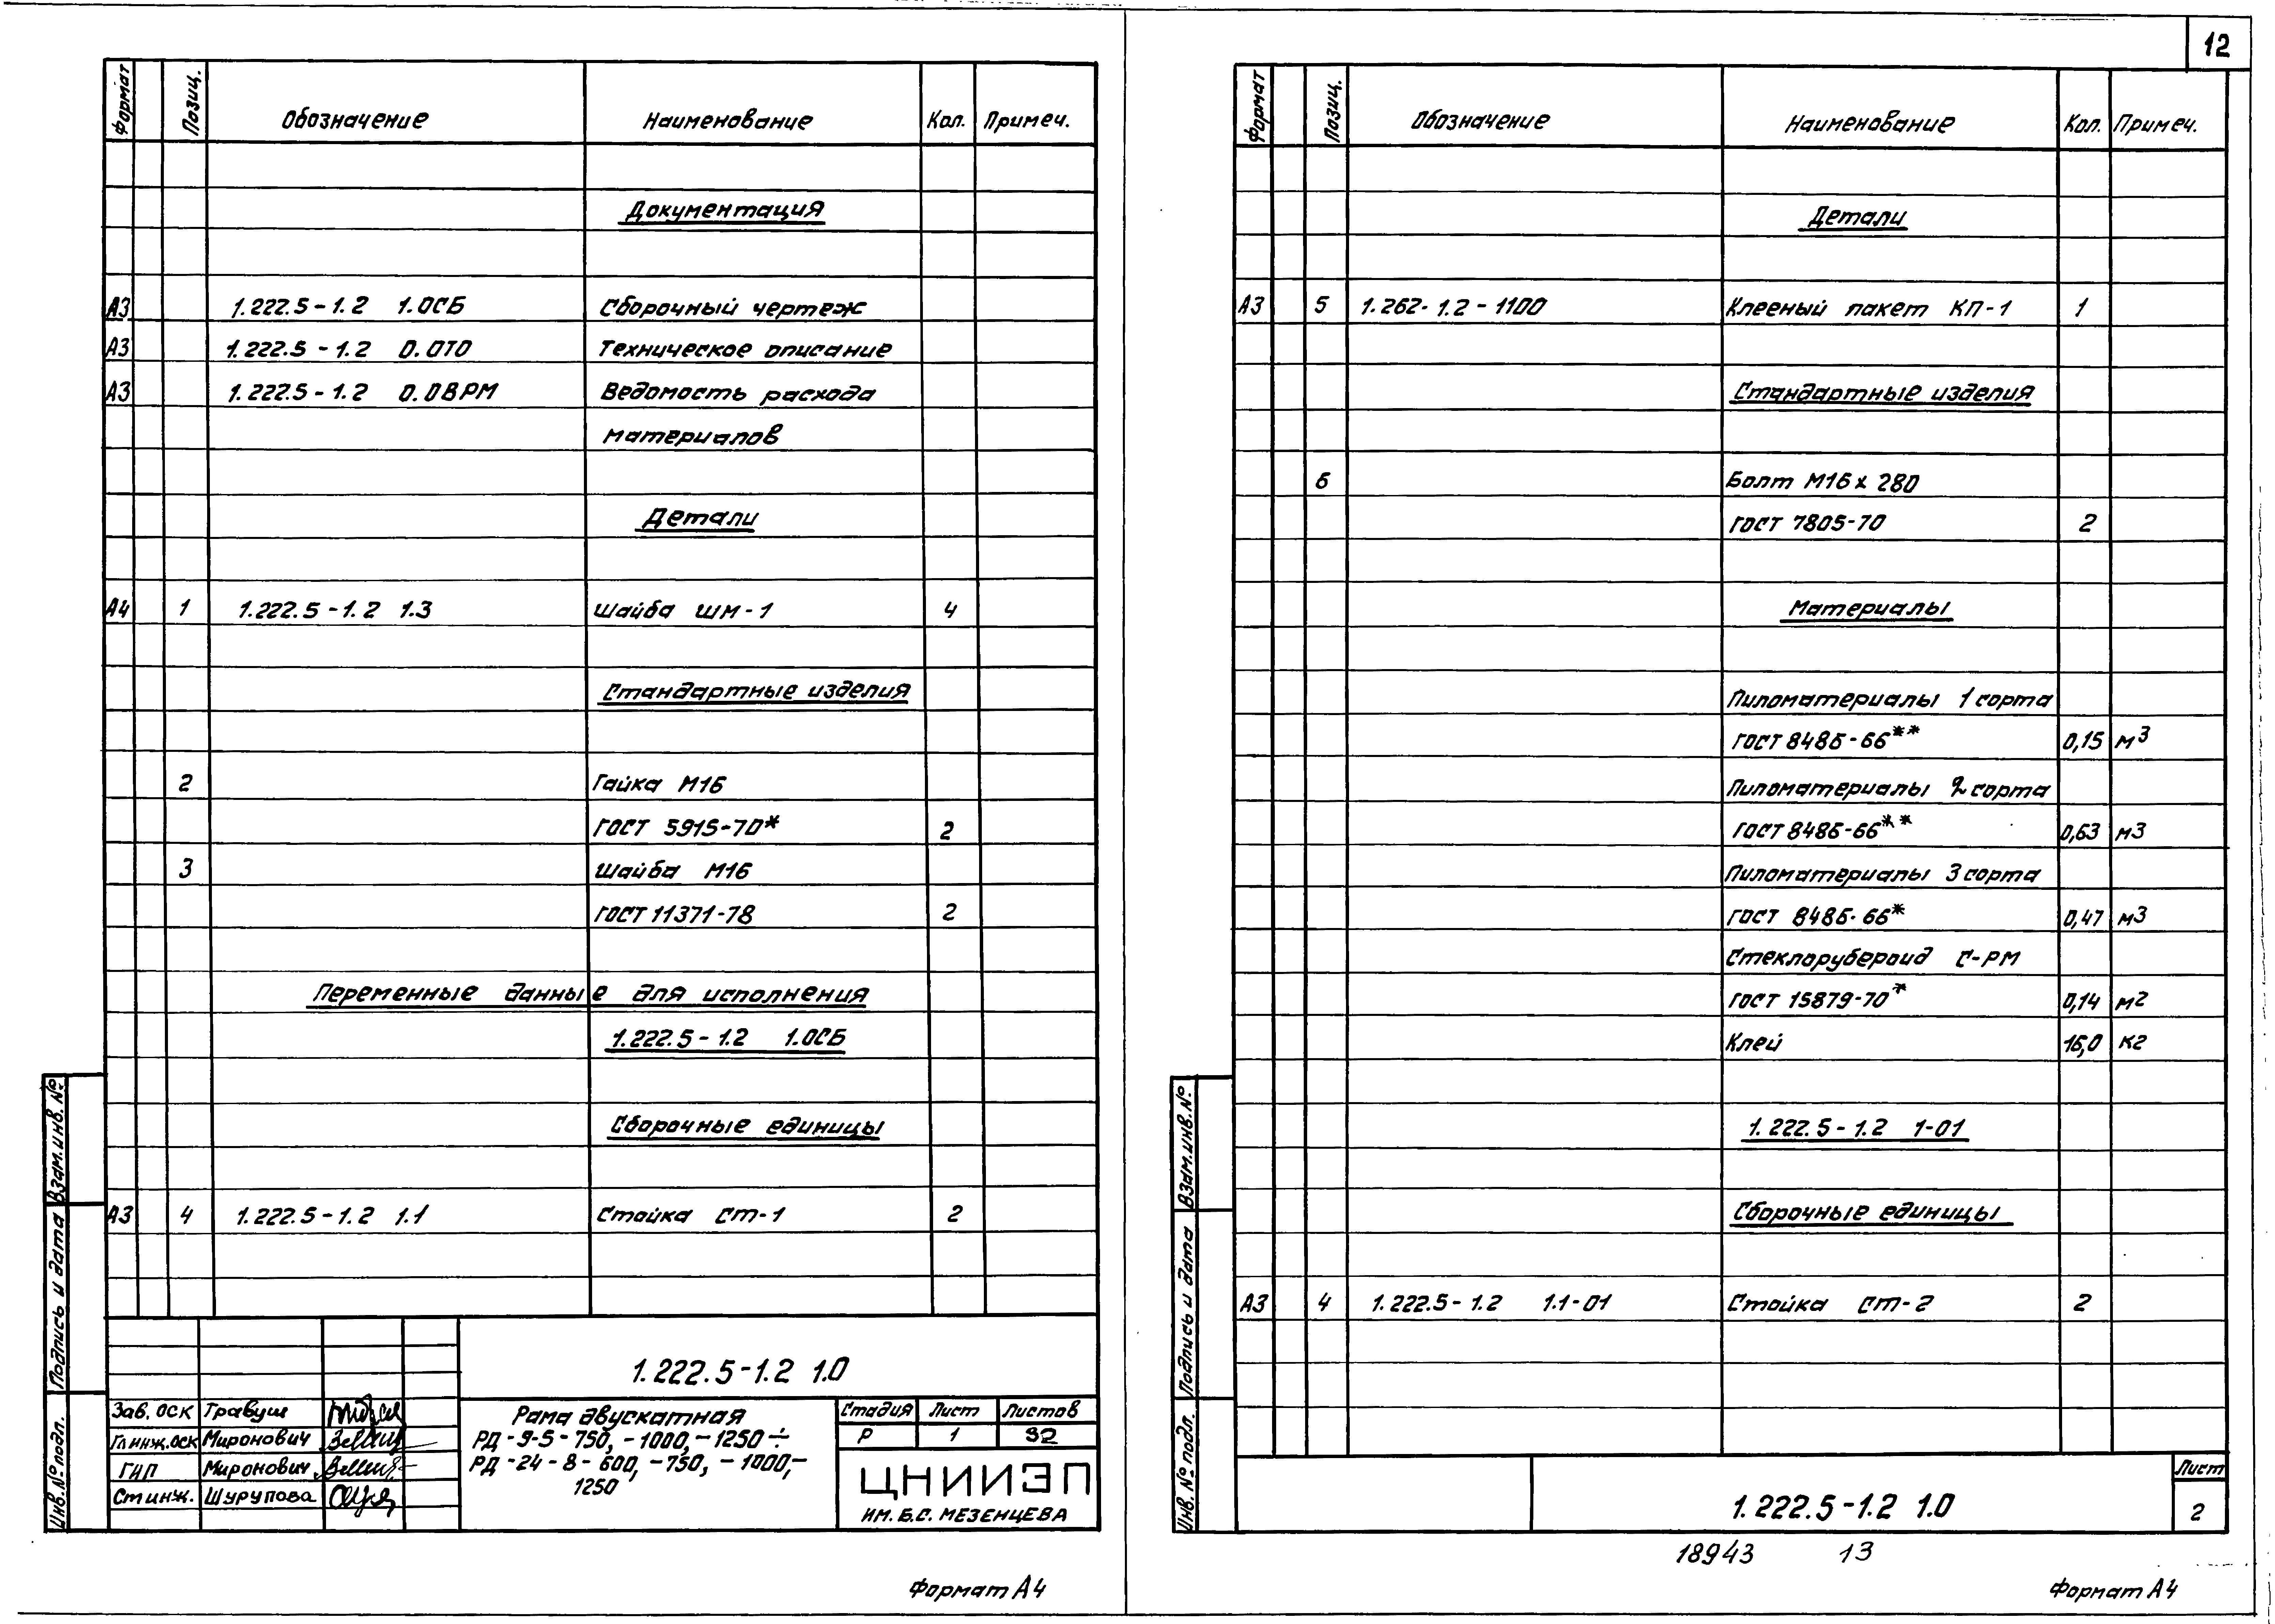 12
Формат Позиц. Обозначение Наименование Кол. Примеч.
Документация
А3 1.222.5-1.2 1.0СБ Сборочный чертеж
А3 1.222.5-1.2 0.0ТО Техническое описание
А3 1.222.5-1.2 0.0ВРМ Ведомость расхода
материалов
Детали
А4 1 1.222.5-1.2 1.3 Шайба ШМ-1 4
Стандартные изделия
2 Гайка М16
ГОСТ 5915-70* 2
3 Шайба М16
ГОСТ 11371-78 2
Переменные данные для исполнения
1.222.5-1.2 1.0СБ
Сборочные единицы
А3 4 1.222.5-1.2 1.1 Стойка СТ-1 2
Взам.инв. №
Подпись и дата
Инв. № подл.
1.222.5-1.2 1.0
Зав. ОСК Травуш
Гл инж.ОСК Миронович
ГИП Миронович
Ст инж. Шурупова
Рама двускатная
РД-9-5-750, -1000, -1250 ÷
РД-24-8-600, -750, -1000,-
1250
Стадия Лист Листов
Р 1 32
ЦНИИЭП
ИМ. Б.С. МЕЗЕНЦЕВА
Формат А4
Формат Позиц. Обозначение Наименование Кол. Примеч.
Детали
А3 5 1.262-1.2-1100 Клееный пакет КП-1 1
Стандартные изделия
6 Болт М16х280
ГОСТ 7805-70 2
Материалы
Пиломатериалы 1 сорта
ГОСТ 8486-66** 0,15 м3
Пиломатериалы 2 сорта
ГОСТ 8486-66** 0,63 м3
Пиломатериалы 3 сорта
ГОСТ 8486-66* 0,47 м3
Стеклорубероид С-РМ
ГОСТ 15879-70* 0,14 м2
Клей 16,0 кг
1.222.5-1.2 1-01
Сборочные единицы
А3 4 1.222.5-1.2 1.1-01 Стойка СТ-2 2
Взам.инв. №
Подпись и дата
Инв. № подл.
1.222.5-1.2 1.0
Лист
2
18943 13
Формат А4